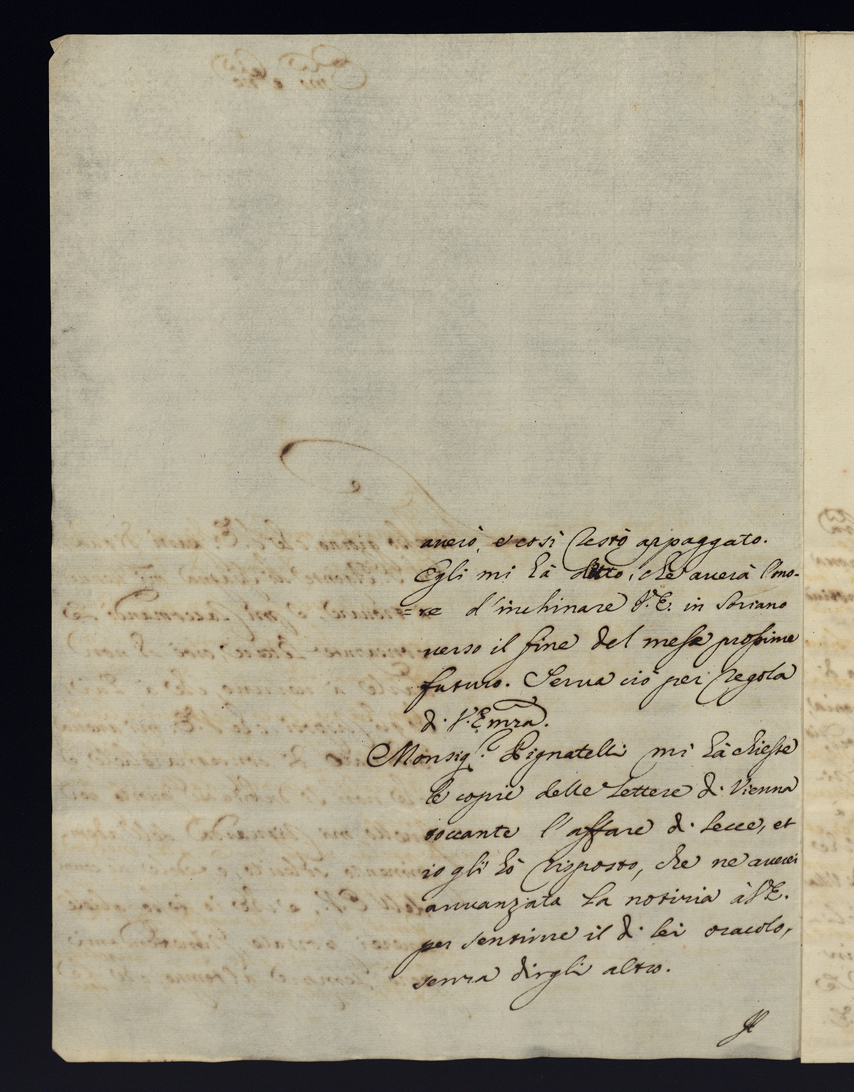 auerò, e così restò appaggato.
Egli mi hà detto, che auerà l'ono-
=re d'inchinare V.E. in Soriano
verso il fine del mese prossimo
futuro. Serua ciò per regola
di V. Emza.
Monsig.r Pignatelli mi hà chieste
le copie delle Lettere di Vienna
toccante l'affare di Lecce, et
io gli hò risposto, che ne auerei
auuanzata la notizia à V.E.
per sentirne il di lei oracolo,
senza dirgli altro.
Il